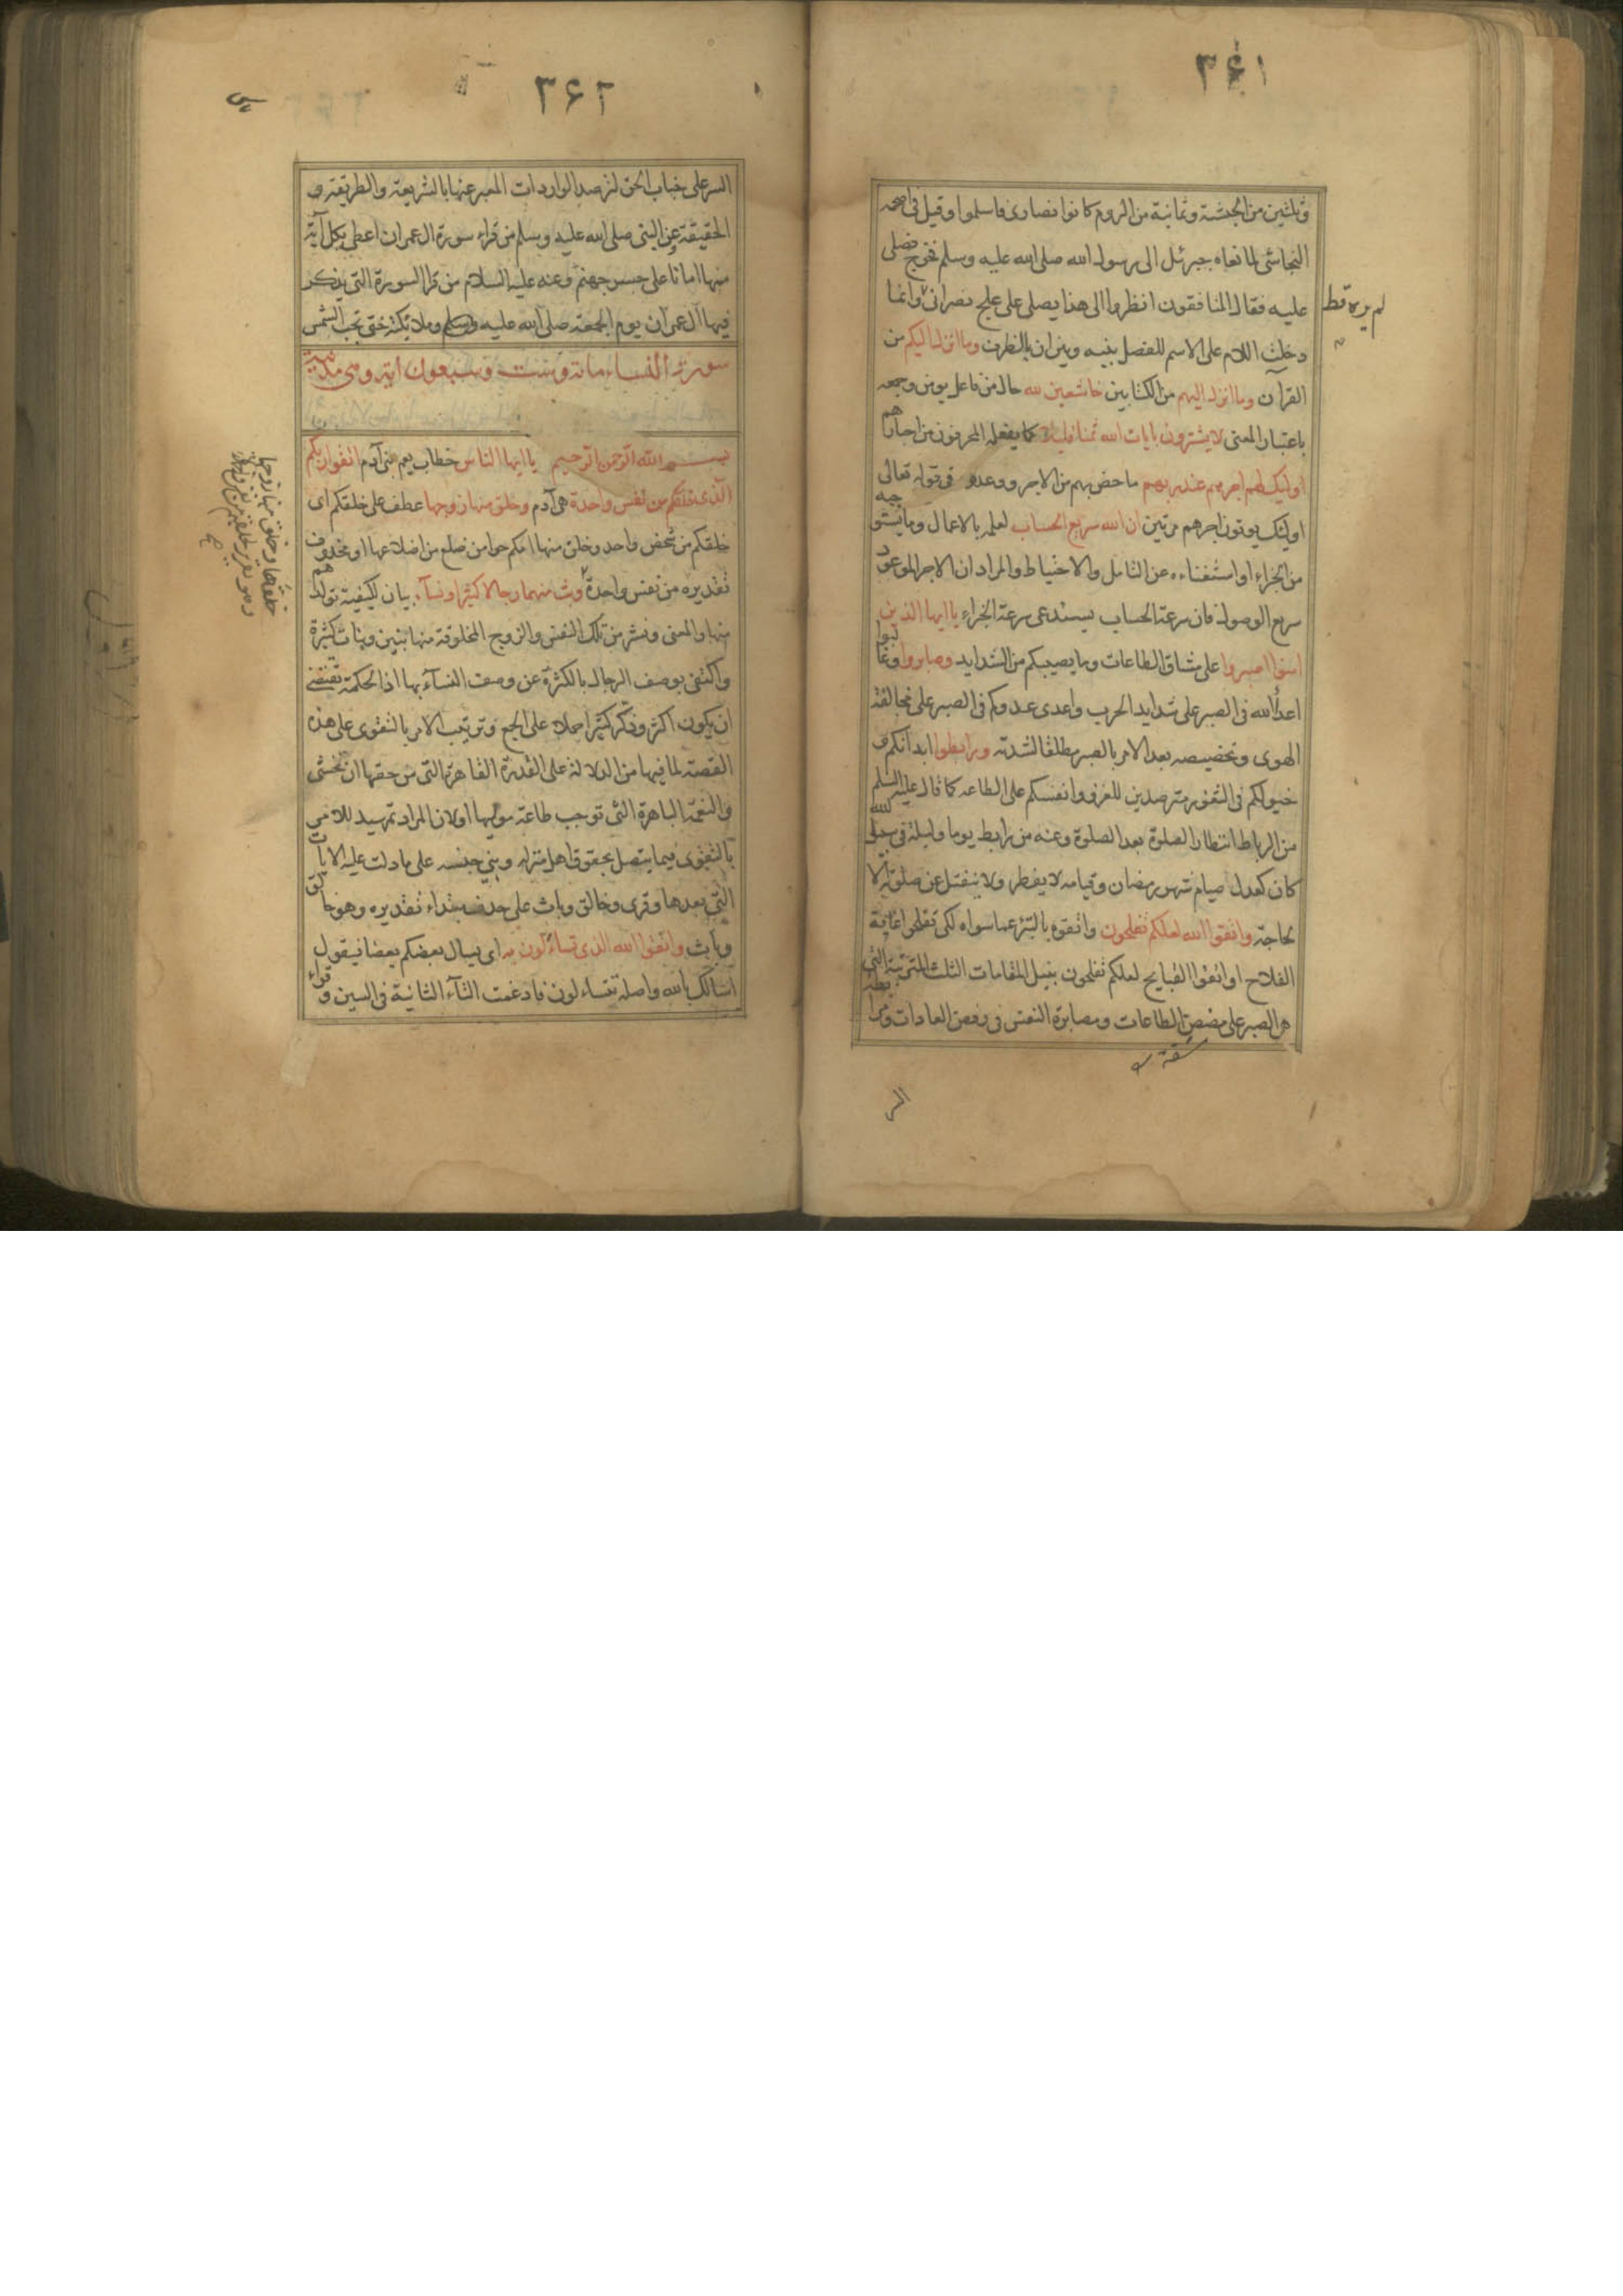 ٣٤١
وثلثين من الحبشة وثمانية من الروم كانوا نصارى فاسلموا وقيل فى اصحمه
النجاشى لما نعاه جبرئل الى رسول الله صلى الله عليه وسلم فخرج فصلى
عليه فقال المنافقون انظروا الى هذا يصلى على علج نصرانى وانما
لم يره قط
دخلت اللام على الاسم للفصل بينه وبين ان بالظرف وما انزل اليكم من
القرآن وما انزل اليهم من الكتابين خاشعين لله حال من فاعل يومن وجمعه
باعتبار المعنى لا يشترون بايات الله ثمنا قليلا كما يفعله المحرفون من احبارهم
اوليك لهم اجرهم عند ربهم ما خص بهم من الاجر ووعده فى قوله تعالى
اوليك يوتون اجرهم مرتين ان الله سريع الحساب لعلمه بالاعمال وما يستوجبه
من الجزاء او استغناءه عن التامل والاحتياط والمراد ان الاجر الموعود
سريع الوصول فان سرعة الحساب يستدعى سرعة الجزاء يا ايها الذين
امنوا اصبروا على مشاق الطاعات وما يصيبكم من الشدايد وصابروا وغالبوا
اعدأ الله فى الصبر على شدايد الحرب واعدى عدوكم فى الصبر على مخالفة
الهوى وتخصيصه بعد الامر بالصبر مطلقا لشدته ورابطوا ابدانكم و
خيولكم فى الثغور مترصدين للغزو وانفسكم على الطاعه كما قال عليه السلم
من الرباط انتظار الصلوة بعد الصلوة وعنه من رابط يوما وليلة فى سبيل الله
كان كعدل صيام شهر رمضان وقيامه لا يفطر ولا ينفتل عن صلوته الا
لحاجة واتقوا الله لعلكم تفلحون واتقوه بالتبرء عما سواه لكى تفلحوا غاية
الفلاح او اتقوا القبايح لعلكم تفلحون بنيل المقامات الثلث المترتبة التى
هى الصبر على مضض الطاعات ومصابرة النفس فى رفض العادات ومرابطة
مشقة
السر
٣٤٢
السر على جناب الحق لترصد الواردات المعبر عنها بالشريعة والطريقة و
الحقيقة وعن النبى صلى الله عليه وسلم من قراء سورة ال عمران اعطى بكل آية
منها امانا على جسر جهنم وعنه عليه السلام من قرا السورة التى يذكر
فيها آل عمران يوم الجمعة صلى الله عليه وملائكته حتى تجب الشمس
سورة النساء مائة وست وسبعون اية وهى مدنية
بسم الله الرحمن الرحيم يا ايها الناس خطاب يعم بنى آدم اتقوا ربكم
الذى خلقكم من نفس واحدة هى آدم وخلق منها زوجها عطف على خلقكم اى
خلقكم من شخص واحد وخلق منها امكم حوا من ضلع من اضلاعها او محذوف
تقديره من نفس واحدة وبث منهما رجالا كثيرا ونسآء بيان لكيفية تولدهم
خلقها وخلق منها زوجها
وهو تقرير لخلقهم من نفس واحدة
منها والمعنى ونشر من تلك النفس والزوج المخلوقة منها بنين وبنات كثيرة
واكتفى بوصف الرجال بالكثرة عن وصف النسآء بها اذ الحكمة تقتضى
ان يكون اكثر وذكر كثيرا حملا على الجمع وترتيب الامر بالتقوى على هذه
القصة لما فيها من الدلالة على القدرة القاهرة التى من حقها ان تخشى
والنعمة الباهرة التى توجب طاعة موليها او لان المراد تمهيد للامر
بالتقوى فيما يتصل بحقوق اهل منزله وبنى جنسه على ما دلت عليه الايات
التى بعدها وقرى وخالق وباث على حذف مبتداء تقديره وهو خالق
وباث واتقوا الله الذى تساءلون به اى يسال بعضكم بعضا فيقول
اسالك بالله واصله تتساءلون فادغمت التآء الثانية فى السين وقراء